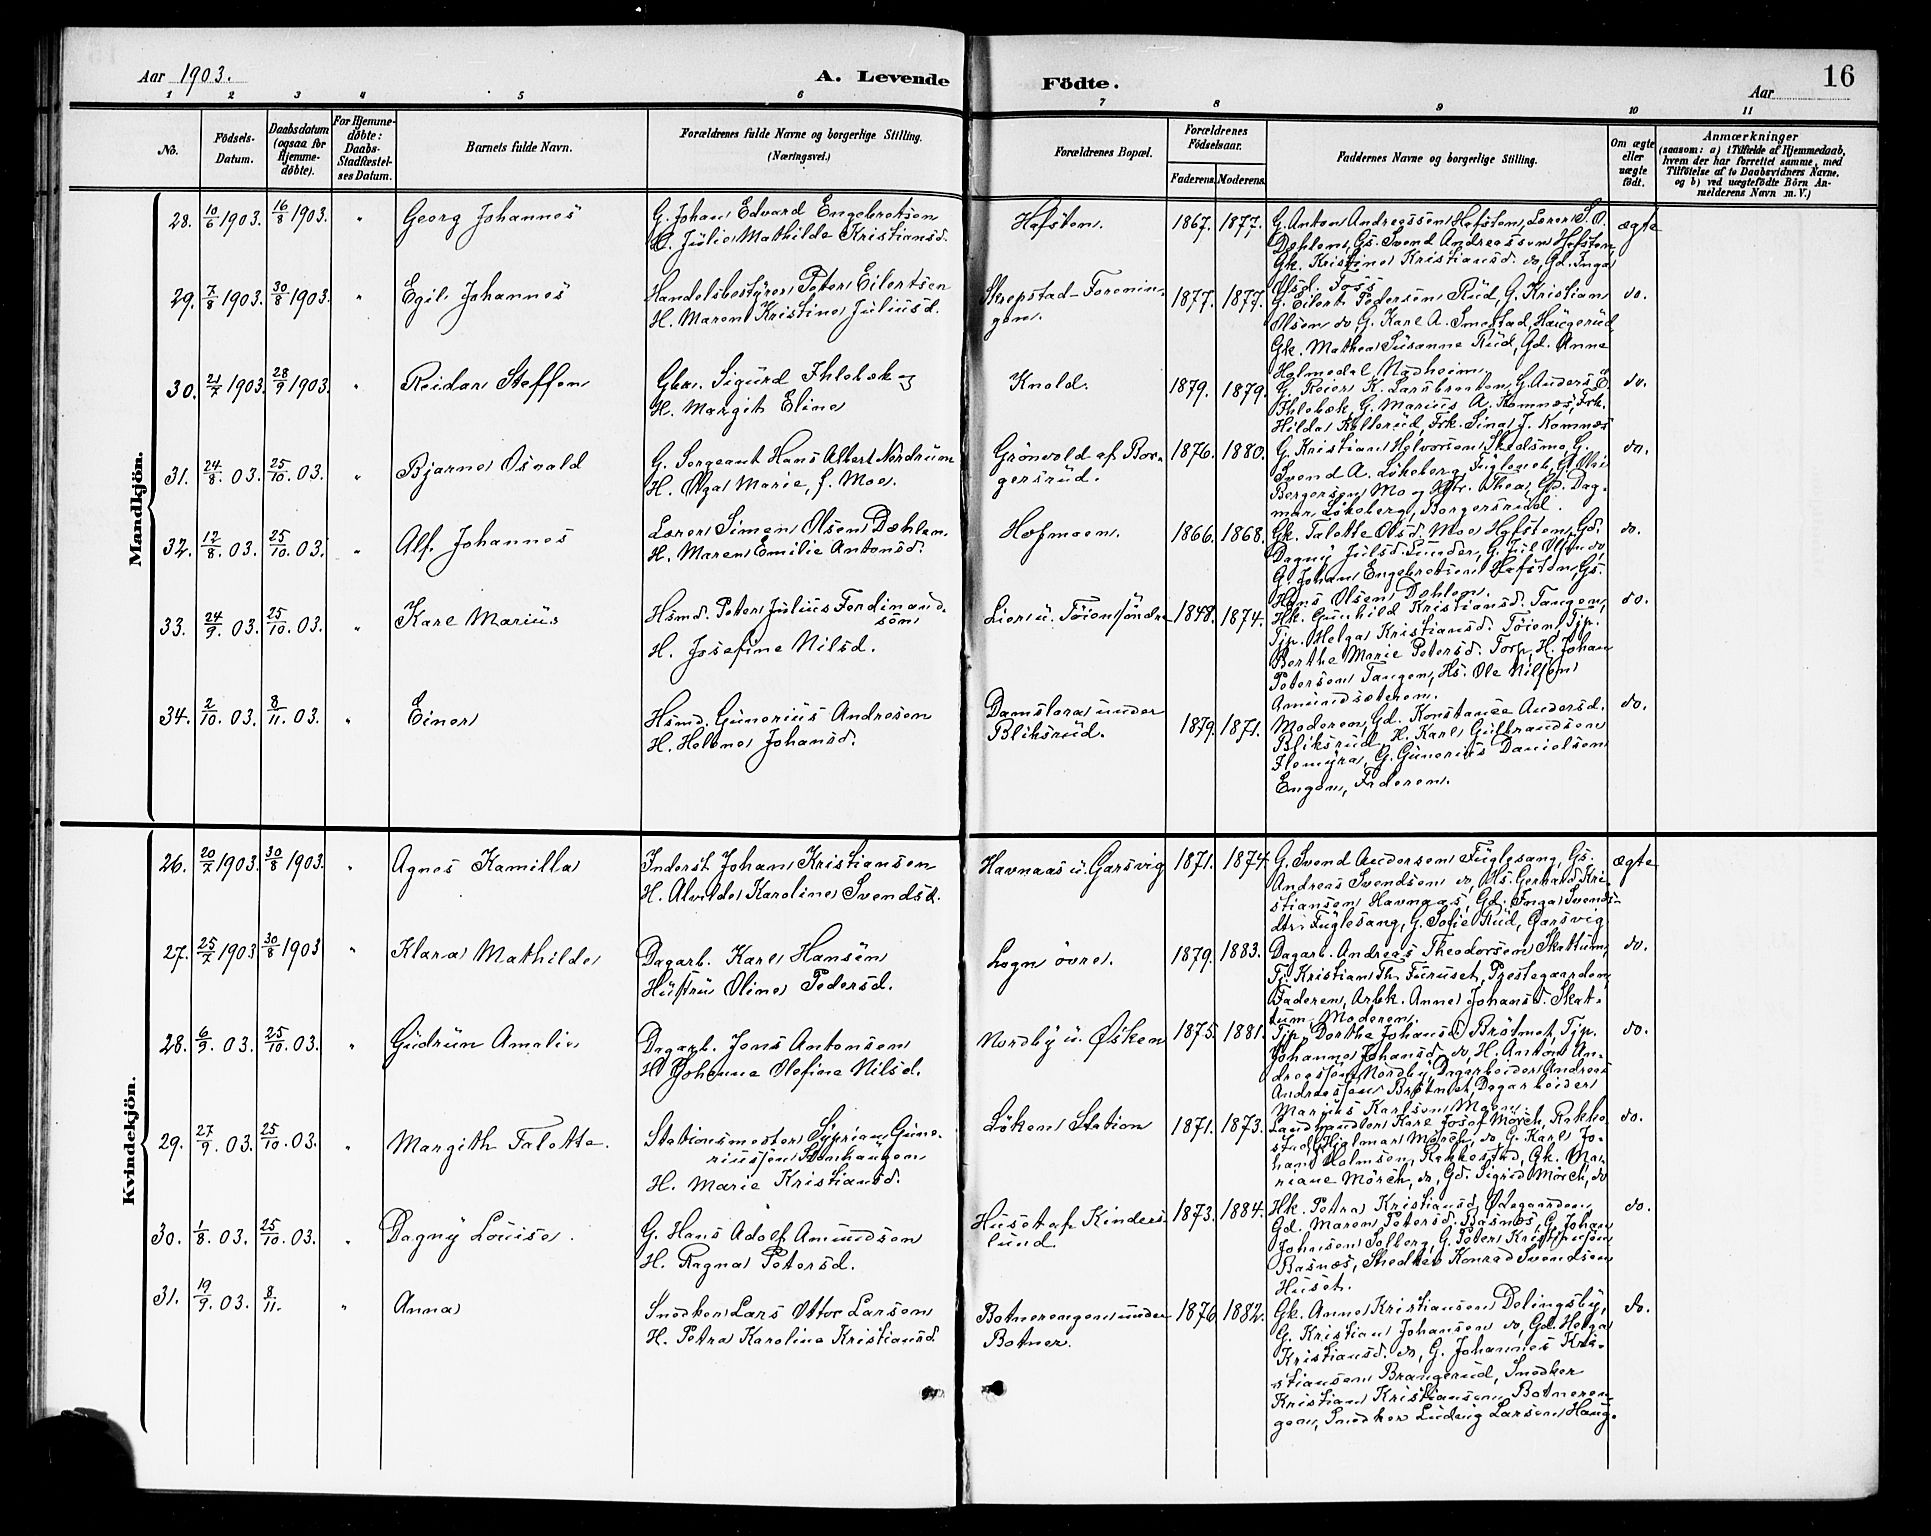 Aar 1903.
A. Levende
Födte.
Aar
16
1 2 3 4 5 6 7 8 9 10 11
No.
Födsels-
Datum.
Daabsdatum
(ogsaa for
Hjemme-
døbte).
For Hjemme-
døbte:
Daabs-
Stadfæstel-
ses Datum.
Barnets fulde Navn.
Forældrenes fulde Navne og borgerlige Stilling.
(Næringsvei.)
Forældrenes Bopæl.
Forældrenes
Födselsaar.
Faderens. Moderens.
Faddernes Navne og borgerlige Stilling.
Om ægte
eller
uægte
födt.
Anmærkninger
(saasom: a) i Tilfælde af Hjemmedaab,
hvem der har forrettet samme, med
Tilföielse af to Daabsvidners Navne,
og b) ved uægtefödte Börn An-
melderens Navn m. V.)
Mandkjön.
28. 10/6 1903. 16/8 1903. " Georg Johannes
G. Johan Edvard Engebretsen
H. Julie Mathilde Kristiansd.
Hafsten. 1867. 1877.
G. Anton Andreassen Hafsten, Lærer S. O.
Dæhlen, Gs. Svend Andreassen Hafsten,
Gk. Kristine Kristiansd. do, Gd. Inga
Olsd. Foss
ægte
29. 7/8 1903. 30/8 1903. " Egil Johannes
Handelsbestyrer Peter Eilertsen
H. Maren Kristine Juliusd.
Skrepstad-Forenin-
gen. 1877. 1877.
G. Eilert Pedersen Rud, G. Kristian
Olsen do, G. Karl A. Smestad, Haugerud,
Gk. Mathea Susanne Rud, Gd. Anne
Holmedal, Modheim
do.
30. 21/7 1903 28/9 1903. " Reidar Steffen
Gbr. Sigurd Ihlebæk og
H. Margit Eline
Knold. 1879. 1879.
G. Reier K. Larsbraaten, G. Anders E
Ihlebæk, G. Marius A. Komnæs, Frk.
Hilda Kolterud, Frk. Sina J. Komnæs
do.
31. 24/8. 03. 25/10. 03. " Bjarne Osvald
G. Sergeant Hans Albert Nordrum
H. Olga Marie, f. Moe.
Grönvold af Bor-
gersrud. 1876. 1880.
G. Kristian Halvorsen Skedsmo, G.
Svend A. Lökeberg, Fugleneb, G. Ole
Bergersen Mo og Htr. Thea, Gd. Dag-
mar Lökeberg, Borgersrud.
do.
32. 12/8. 03. 25/10. 03. " Alf Johannes
Lærer Simen Olsen Dæhlen.
H. Maren Emilie Antonsd.
Hofmoen. 1866. 1868.
Gk. Talette Olsd. Moe Hafsten, Gd.
Dagny Julsd. Lunder, G. Jul Olsen do,
G. Johan Engebretsen Hafsten, Gs.
Hans Olsen Dæhlen.
do.
33. 24/9. 03. 25/10. 03. " Karl Marius
Hsmd. Peter Julius Ferdinand-
sen
H. Josefine Nilsd.
Lier u. Töien söndre 1848. 1874.
Hk. Gunhild Kristiansd. Tangen,
Tjp. Helga Kristiansd. Töien, Tjp.
Berthe Marie Petersd. Torp, H. Johan
Petersen Tangen, Hs. Ole Nilsen
Amundsæteren.
do.
34. 2/10. 03. 8/11. 03. " Einer
Hsmd. Gunerius Andresen
H. Helene Johansd.
Damslora under
Bliksrud. 1879. 1871.
Moderen, Gd. Konstance Andersd.
Bliksrud, H. Karl Gulbrandsen
Flemyra, G. Gunerius Danielsen
Engen, Faderen.
do.
Kvindekjön.
26. 20/7 1903. 30/8 1903. " Agnes Kamilla
Inderst Johan Kristiansen
H. Alvilde Karoline Svendsd.
Havnaas u. Garsvig 1871. 1874.
G. Svend Andersen Fuglesang, Gs.
Andreas Svendsen do, Hs. Gerhard Kri-
stiansen Havnaas, Gd. Inga Svends-
dtr. Fuglesang, G. Sofie Rud, Garsvig
ægte
27. 25/7 1903 30/8 1903 " Klara Mathilde
Dagarb. Karl Hansen
Hustru Oline Pedersd.
Logn övre. 1879. 1883.
Dagarb. Andreas Theodorsen Skattum,
Tj. Kristian Th. Furuset, Prestegaarden,
Faderen, Arbk. Anne Johansd. Skat-
tum, Moderen.
do.
28. 6/9. 03. 25/10. 03. " Gudrun Amalie
Dagarb. Jens Antonsen
H. Johanne Olefine Nilsd.
Nordby u. Østen 1875. 1881.
Tjp. Dorthe Johansd. Bråtnet, Tjp.
Johanne Johansd. do, H. Anton An-
dreassen Nordby, Dagarbeider Andreas
Andreassen Bråtnet, Dagarbeider
Marius Karlsen Moen
do.
29. 27/9. 03. 25/10. 03. " Margith Talette.
Stationsmester Syprian Gune-
riussen Stenhaugen
H. Marie Kristiansd.
Löken Station 1871. 1873.
Landhandler Karl Josef Mörch, Rakke-
stad, Hjalmar Mörch, do, G. Karl Jo-
han Holmsen Rakkestad, Gk. Ma-
riane Mörch, do, Gd. Sigrid Mörch, do
do.
30. 1/8. 03. 25/10. 03. " Dagny Louise.
G. Hans Adolf Amundsen
H. Ragna Petersd.
Huset af Kinders-
lund. 1873. 1884.
Hk. Petra Kristiansd. Ødegaarden,
Gd. Maren Petersd. Basnæs, G. Johan
Johnsen Solberg, G. Peter Kristiansen
Basnæs, Snedker Konrad Svendsen
Huset.
do.
31. 19/9. 03. 8/11. " Anna
Snedker Lars Otto Larsen
H. Petra Karoline Kristiansd
Botnerengen under
Botner. 1876 1882.
Gk. Anne Kristiansen Delingsby,
G. Kristian Johansen do, Gd. Helga
Kristiansd. do, G. Johannes Kri-
stiansen Brangerud, Snedker
Kristian Kristiansen Botneren-
gen, Snedker Ludvig Larsen Haug.
do.